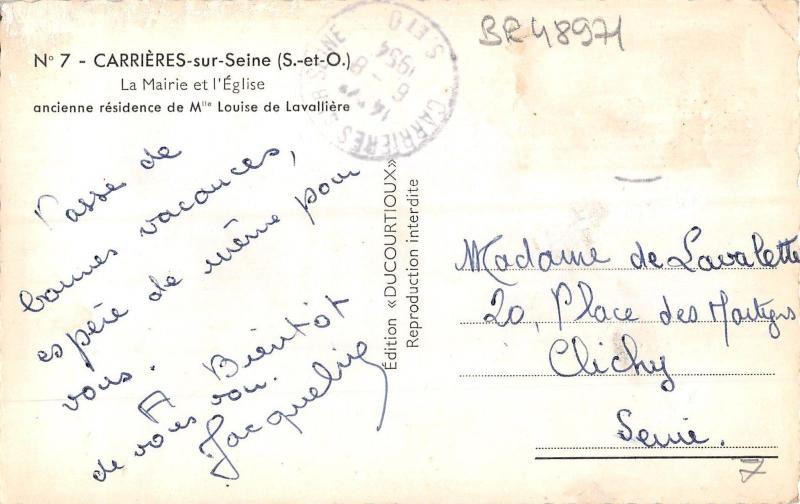 N° 7 - CARRIÈRES-sur-Seine (S.-et-O.)
La Mairie et l'Église
ancienne résidence de Mlle Louise de Lavallière
CARRIÈRES-S-SEINE S. ET O
14
6 - 8
1954
BR48971
Passe de
bonnes vacances,
espère de même pour
vous.
A Bientôt
de vous voir.
Jacqueline
Édition «DUCOURTIOUX»
Reproduction interdite
Madame de Lavalette
20, Place des Martyrs
Clichy
Seine.
7